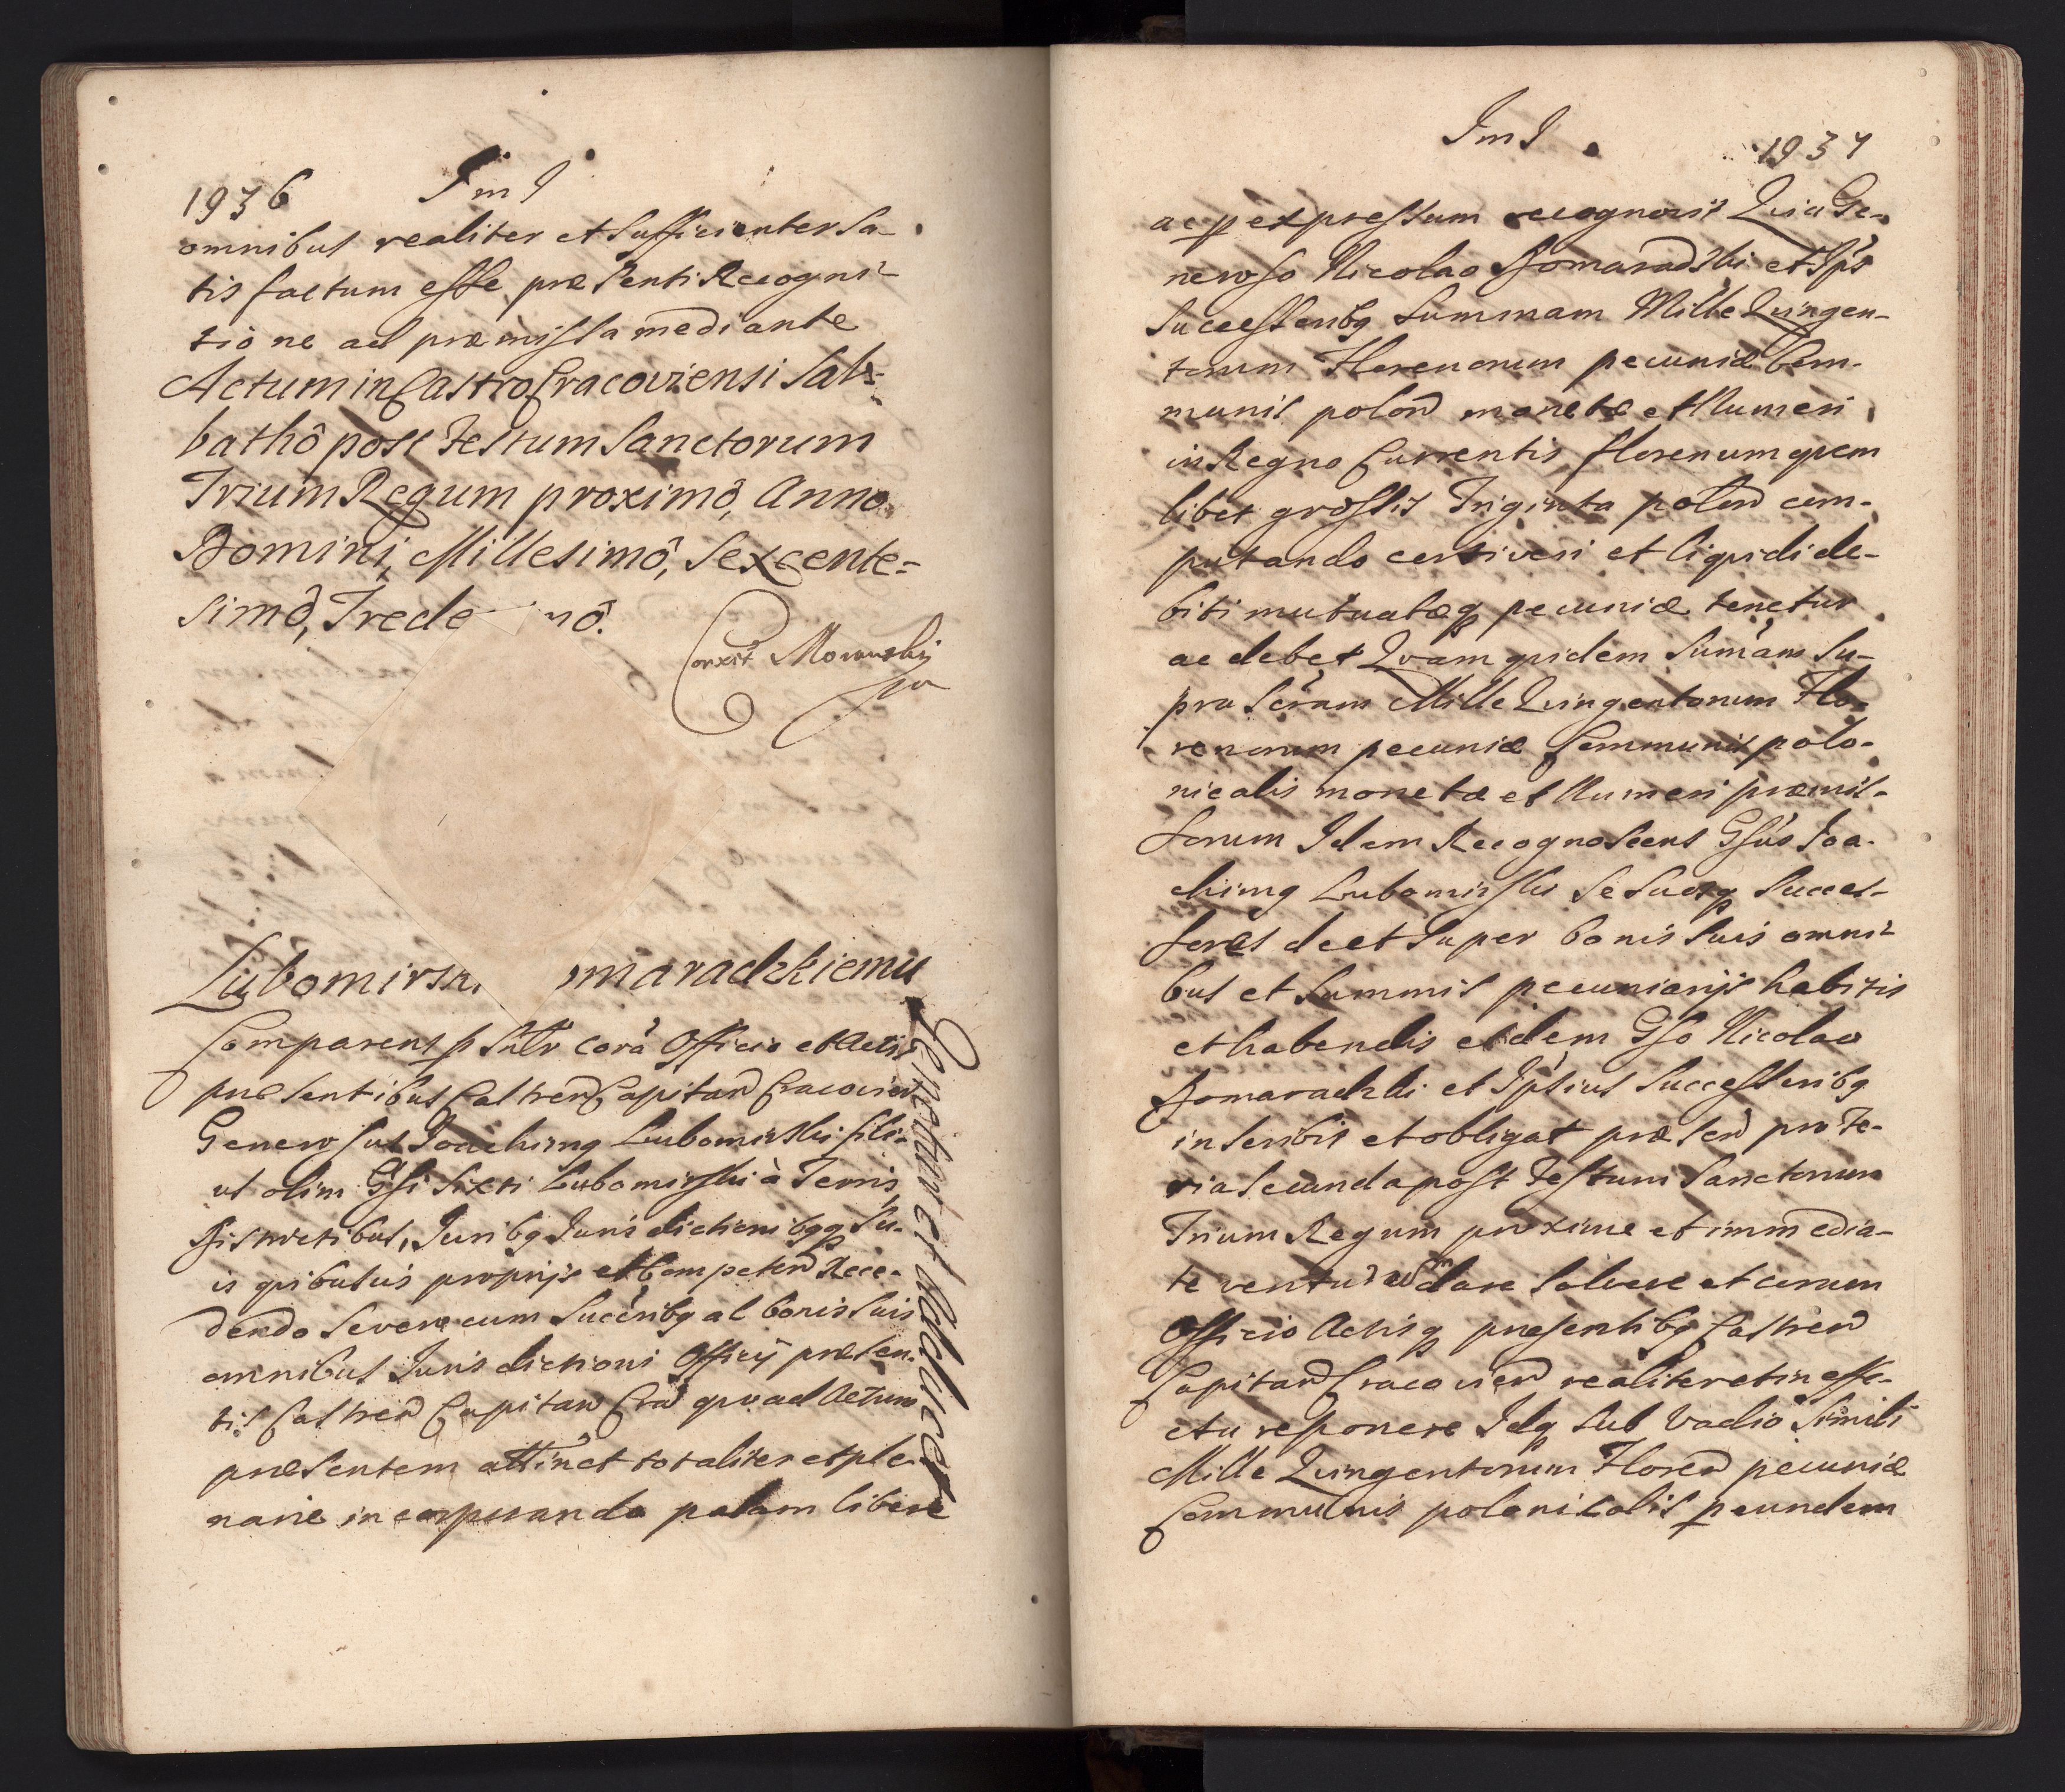 1936 Im I
omnibus realiter et sufficienter sa-
tis factum esse præsenti Recogni-
tione ad præmissa mediante
Actum in Castro Cracoviensi Sab-
bathô post Festum Sanctorum
Trium Regum proximô, Anno
Domini, Millesimô, Sexcente=
simô, Trede nô.
Correxit
Lubomirsk maradzkiemu
Tenetur et Adscribet
Comparens psnlr corã Officio et Actis
præsentibus Castren Capitan Cracovien
Generosus Joachimq Lubomirski fili-
us olim Gsi Sixti Lubomirski à Terris
Districtibus, Juribq Jurisdictionibqq su-
is quibusuis proprijs et Competen Rece-
dendo seвere cum succribq ac bonis suis
omnibus Jurisdictioni Officij præsen-
tis Castren Capitan Cra quo ad Actum
præsentem attinet totaliter et ple-
narie incorporando palam libere
Im I 1937
acqp expressum recognovit Quia Ge-
neroso Nicolao Domaradzki et Ips
Successoribq summam Mille Quingen-
torum Florenorum pecuniæ Com-
munis polon monetæ et Numeri
in Regno Currentis florenum quem
libet grossis Triginta polon com-
putando certi veri et liquidi de-
biti mutuatæq pecuniæ tenetur
ac debet Quam quidem sumam su-
pra scram Mille Quingentorum Flo-
renorum pecuniæ Communis polo-
nicalis monetæ et Numeri præmis-
sorum Idem Recognoscens Gsus Joa-
chimq Lubomirski se suosq succes-
sores de et super bonis suis omni-
bus et summis pecuniarijs habitis
et habendis eidem Gso Nicolao
Domaradzki et Ipsius successoribq
inscribit et obligat præsen pro Fe-
ria secunda post Festum Sanctorum
Trium Regum proxime et immedia-
te ventu dare solvere et coram
Officio Actisq presentibq Castren
Capitan Cracovien realiter et in effe-
ctu reponere Idq sub Vadio simili
Mille Quingentorum Floren pecuniæ
Communis polonicalis p eundem